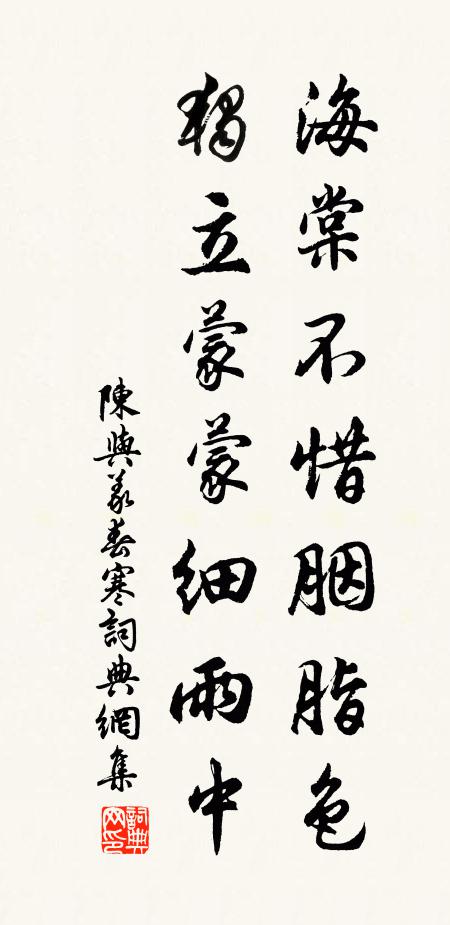 海棠不惜胭脂色
獨立蒙蒙細雨中
陳與義春寒詞典網集
詞典网印